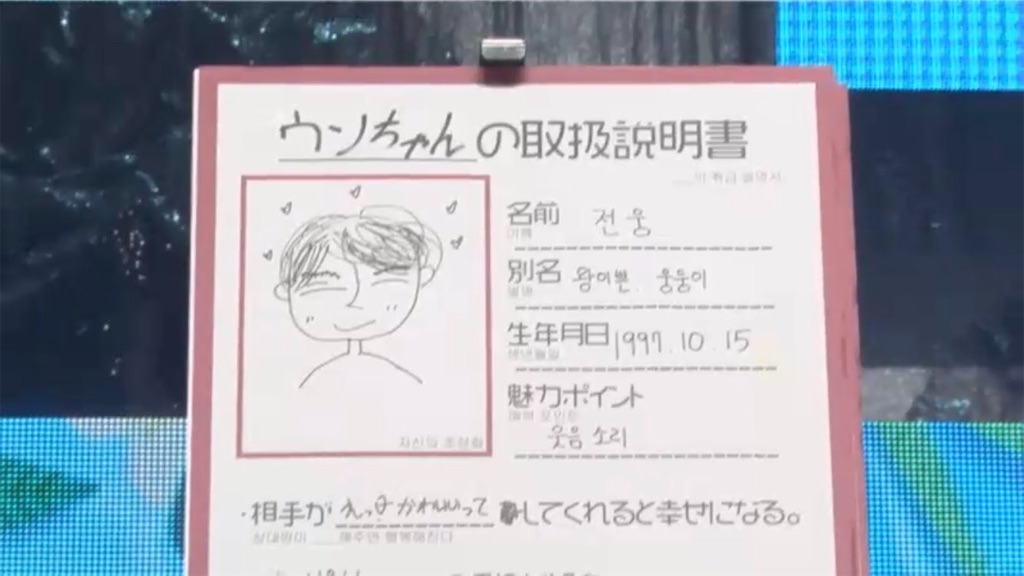 ウンちゃんの取扱説明書
___의 취급 설명서
名前 전웅
이름
別名 왕이쁜. 웅둥이
별명
生年月日 1997.10.15
생년월일
魅力ポイント
매력 포인트
웃음 소리
자신의 초상화
・相手が かわいいって してくれると幸せになる。
상대방이 ___해주면 행복해진다